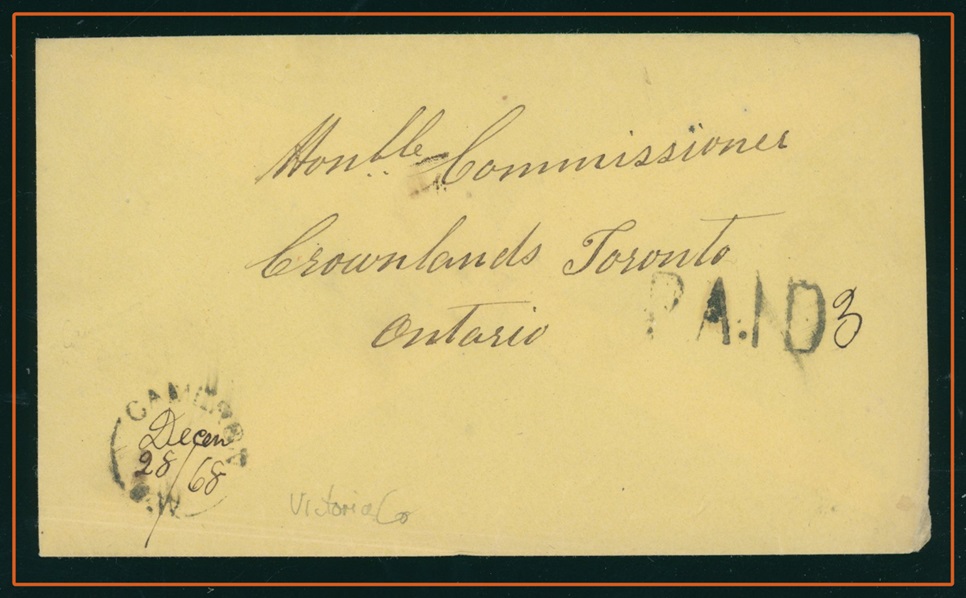 Honble Commissioner
Crownlands Toronto
Ontario
PAID 3
CAMERAY
Decem
28/68
C.W
Victoria Co